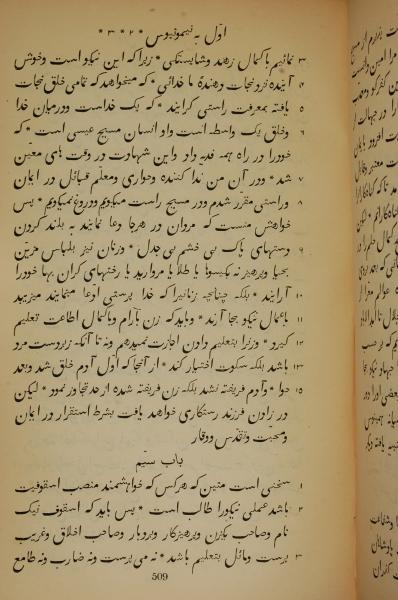 اوّل به تیموتیوس * ۲ * ۳ *
۳ نمائیم با کمال زهد و شایستگی * زیرا که این نیکو است و خوش
۴ آینده نزد نجات دهندهٔ ما خدائی * که میخواهد که تمامی خلق نجات
۵ یافته بمعرفت راستی گرایند * که یک خداست و در میان خدا
۶ و خلق یک واسطه است و او انسان مسیح عیسی است * که
خود را در راه همه فدیه داد و این شهادت در وقت های معیّن
۷ شد * و در آن من ندا کننده و حواری و معلّم قبائل در ایمان
۸ و راستی مقرّر شدم و در مسیح راست میگویم و دروغ نمیگویم * پس
خواهش منست که مردان در هر جا دعا نمایند به بلند کردن
۹ دستهای پاک بی خشم بی جدل * و زنان نیز بلباس مزیّن
بحیا و پرهیز نه بگیسوها یا طلا یا مروارید یا رختهای گران بها خود را
۱۰ آرایند * بلکه چنانچه زنانیرا که خدا پرستی ادعا مینمایند میزیبد
۱۱ با عمال نیکو بجا آرند * و باید که زن بآرام و با کمال اطاعت تعلیم
۱۲ گیرد * و زنرا بتعلیم دادن اجازت نمیدهم و نه تا آنکه زبردست مرد
۱۳ باشد بلکه سکوت اختیار کند * از آنجا که اوّل آدم خلق شد و بعد
۱۴ حوا * و آدم فریفته نشد بلکه زن فریفته شده از حد تجاوز نمود *
۱۵ لیکن در زادن فرزند رستگاری خواهد یافت بشرط استقرار در ایمان
و محبّت و تقدّس و وقار
باب سیّم
۱ سخنی است متین که هر کس که خواهشمند منصب اسقوفیت
۲ باشد عملی نیکو را طالب است * پس باید که اسقوف نیک
نام و صاحب یکزن و پرهیزکار و بردبار و صاحب اخلاق و غریب
۳ پرست و مائل بتعلیم باشد * نه می پرست و نه ضارب و نه طامع
509